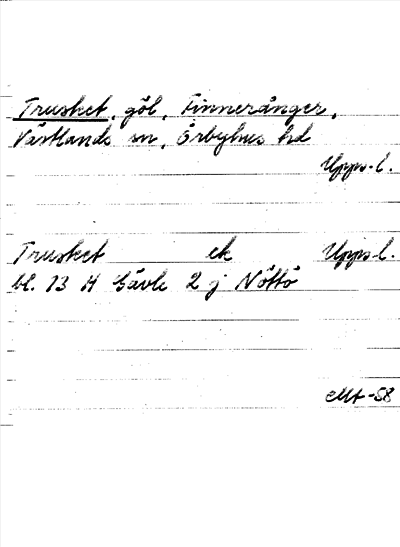 Trusket, göl, Finneränger,
Västlands sn, Örbyhus hd
Upps. l.
Trusket ek Upps. l.
bl. 13 H Gävle 2 j Nöttö
-58